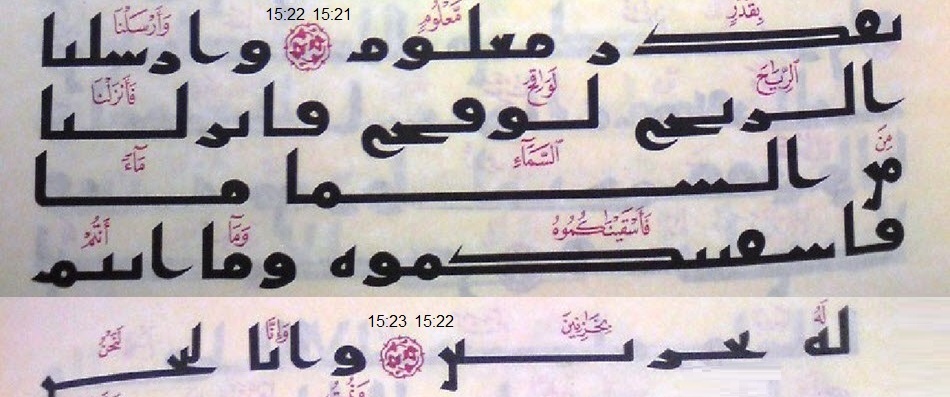 15:22 15:21
بِقَدَرٍ مَّعْلُومٍ وَأَرْسَلْنَا
بقدر معلوم وارسلنا
ٱلرِّيَٰحَ لَوَٰقِحَ فَأَنزَلْنَا
الريح لوقح فانزلنا
مِنَ ٱلسَّمَآءِ مَآءً
من السما ما
فَأَسْقَيْنَٰكُمُوهُ وَمَآ أَنتُمْ
فاسقينكموه وما انتم
15:23 15:22
لَهُۥ بِخَٰزِنِينَ وَإِنَّا لَنَحْنُ
له بخزنين وانا لنحن